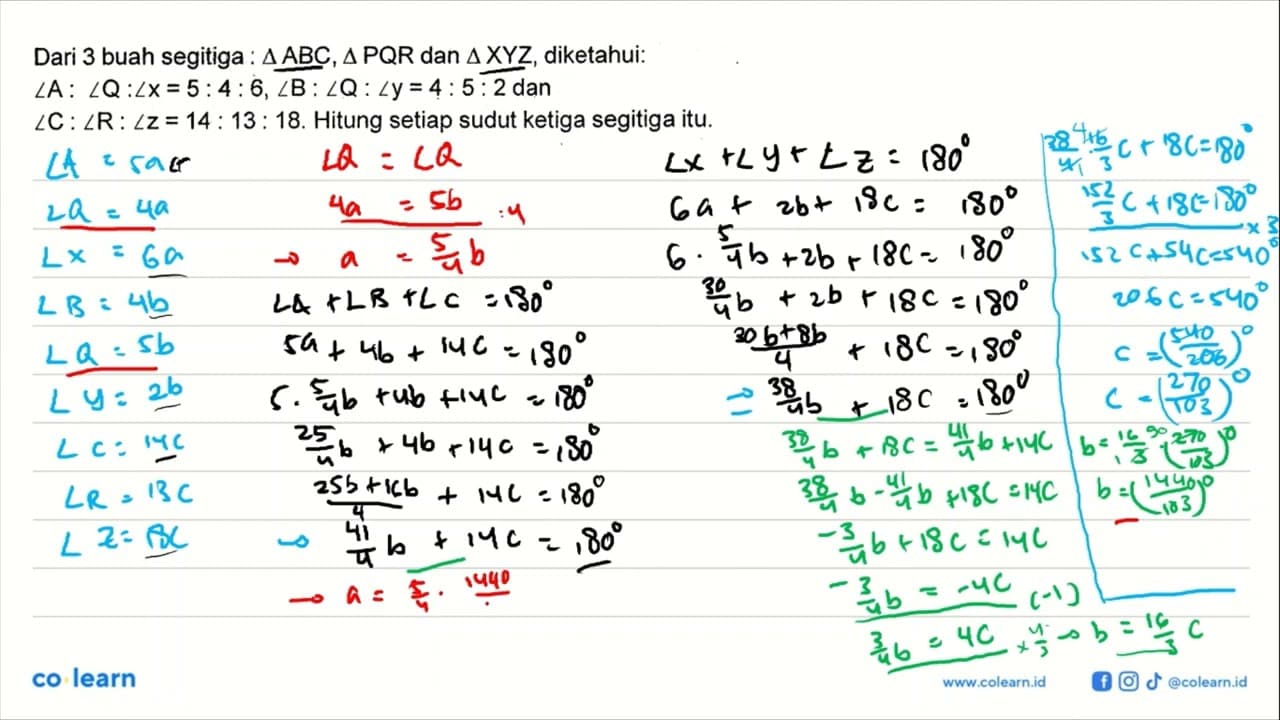 Dari 3 buah segitiga : Δ ABC, Δ PQR dan Δ XYZ, diketahui:
∠A : ∠Q :∠x = 5 : 4 : 6, ∠B : ∠Q : ∠y = 4 : 5 : 2 dan
∠C : ∠R : ∠z = 14 : 13 : 18. Hitung setiap sudut ketiga segitiga itu.
∠A = 5a
∠Q = 4a
∠X = 6a
∠B = 4b
∠Q = 5b
∠Y = 2b
∠C = 14C
∠R = 13C
∠Z = 18C
∠Q = ∠Q
4a = 5b :4
→ a = 5/4 b
∠A + ∠B + ∠C = 180°
5a + 4b + 14C = 180°
5 · 5/4 b + 4b + 14C = 180°
25/4 b + 4b + 14C = 180°
(25b + 16b)/4 + 14C = 180°
→ 41/4 b + 14C = 180°
→ a = 5/4 · 1440/
∠X + ∠Y + ∠Z = 180°
6a + 2b + 18C = 180°
6 · 5/4 b + 2b + 18C = 180°
30/4 b + 2b + 18C = 180°
(30b + 8b)/4 + 18C = 180°
⇒ 38/4 b + 18C = 180°
38/4 b + 18C = 41/4 b + 14C
38/4 b - 41/4 b + 18C = 14C
-3/4 b + 18C = 14C
-3/4 b = -4C (-1)
3/4 b = 4C × 4/3 → b = 16/3 C
38/4 · 16/3 C + 18C = 180°
152/3 C + 18C = 180° × 3
152C + 54C = 540°
206C = 540°
C = (540/206)°
C = (270/103)°
b = 16/3 · (270/103)°
b = (1440/103)°
co·learn
www.colearn.id
@colearn.id